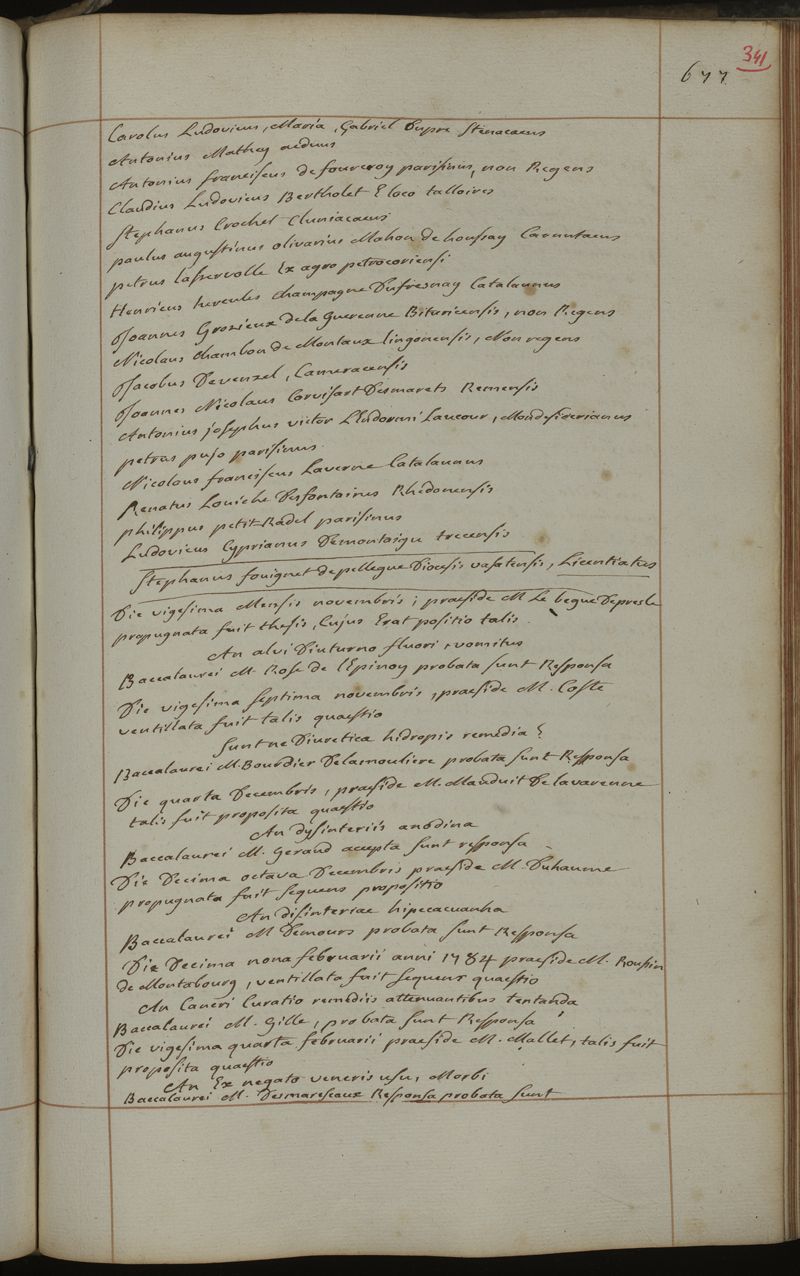 341
677
Carolus Ludovicus, Maria, Gabriel Dupre Stenacaeus
Antonius Mathey aeduus
Antonius franciscus de fourcroy parisinus, non Regens
Claudius Ludovicus Bertholet E loco talloires
Stephanus Crochet Cluniacaeus
paulus augustinus olivarius Mahon de houssay Carnutaeus
petrus lasservolle Ex agro petrocoriensi
Henricus hercules champagne Dufresnay Catalaunus
Joannes Grozieux de la Guerenne Bitaricensis, non Regens
Nicolaus chambon de Montaux lingonensis, Non regens
Jacobus Devenzel, Cameracensis
Joannes Nicolaus Corvisart Desmarets Remensis
Antonius josephus victor Laucour, Mondesiderianus
petrus puso parisinus
Nicolaus franciscus Laverne Catalaunus
Renatus Louiche Desfontaines Rhedonensis
philippus petit-Radel parisinus
Ludovicus Cyprianus Demontaigu trecensis
Stephanus fouignet depellegue Diocesis vasatensis, Licentiatus
Die vigesima Mensis novembris; praeside M Le begue Depresle
propugnata fuit thesis, Cujus Erat positio talis
An alvi Diuturno fluori, vomitus
Baccalaurei M. Rose de lEpinoy probata sunt Responsa
Die vigesima septima novembris, praeside M. Coste
ventillata fuit talis quaestio
Sunt ne Diuretica hidropis remedia?
Baccalaurei M. Bourdier Delamouliere probata sunt Responsa
Die quarta Decembris, praeside M. Mauduit Delavarenne
talis fuit proposita quaestio
An dysinteriis anodina
Baccalaurei M. Geraud accepta sunt responsa
Die Decima octava Decembris praeside M. Duhaume
propugnata fuit sequens propositio
An disinteriae hipecacuanha
Baccalaurei M Demours probata sunt Responsa
Die Decima nona februarii anni 1784 praeside M. Roussin
de Montabourg, ventillata fuit sequens quaestio
An Cancri Curatio remediis attenuantibus tentanda
Baccalaurei M. Gille, probata sunt Responsa
Die vigesima quarta februarii praeside M. Mallet, talis fuit
proposita quaestio
An Ex negato veneris usu, Morbi
Baccalaurei M. Desmaresceaux Responsa probata sunt